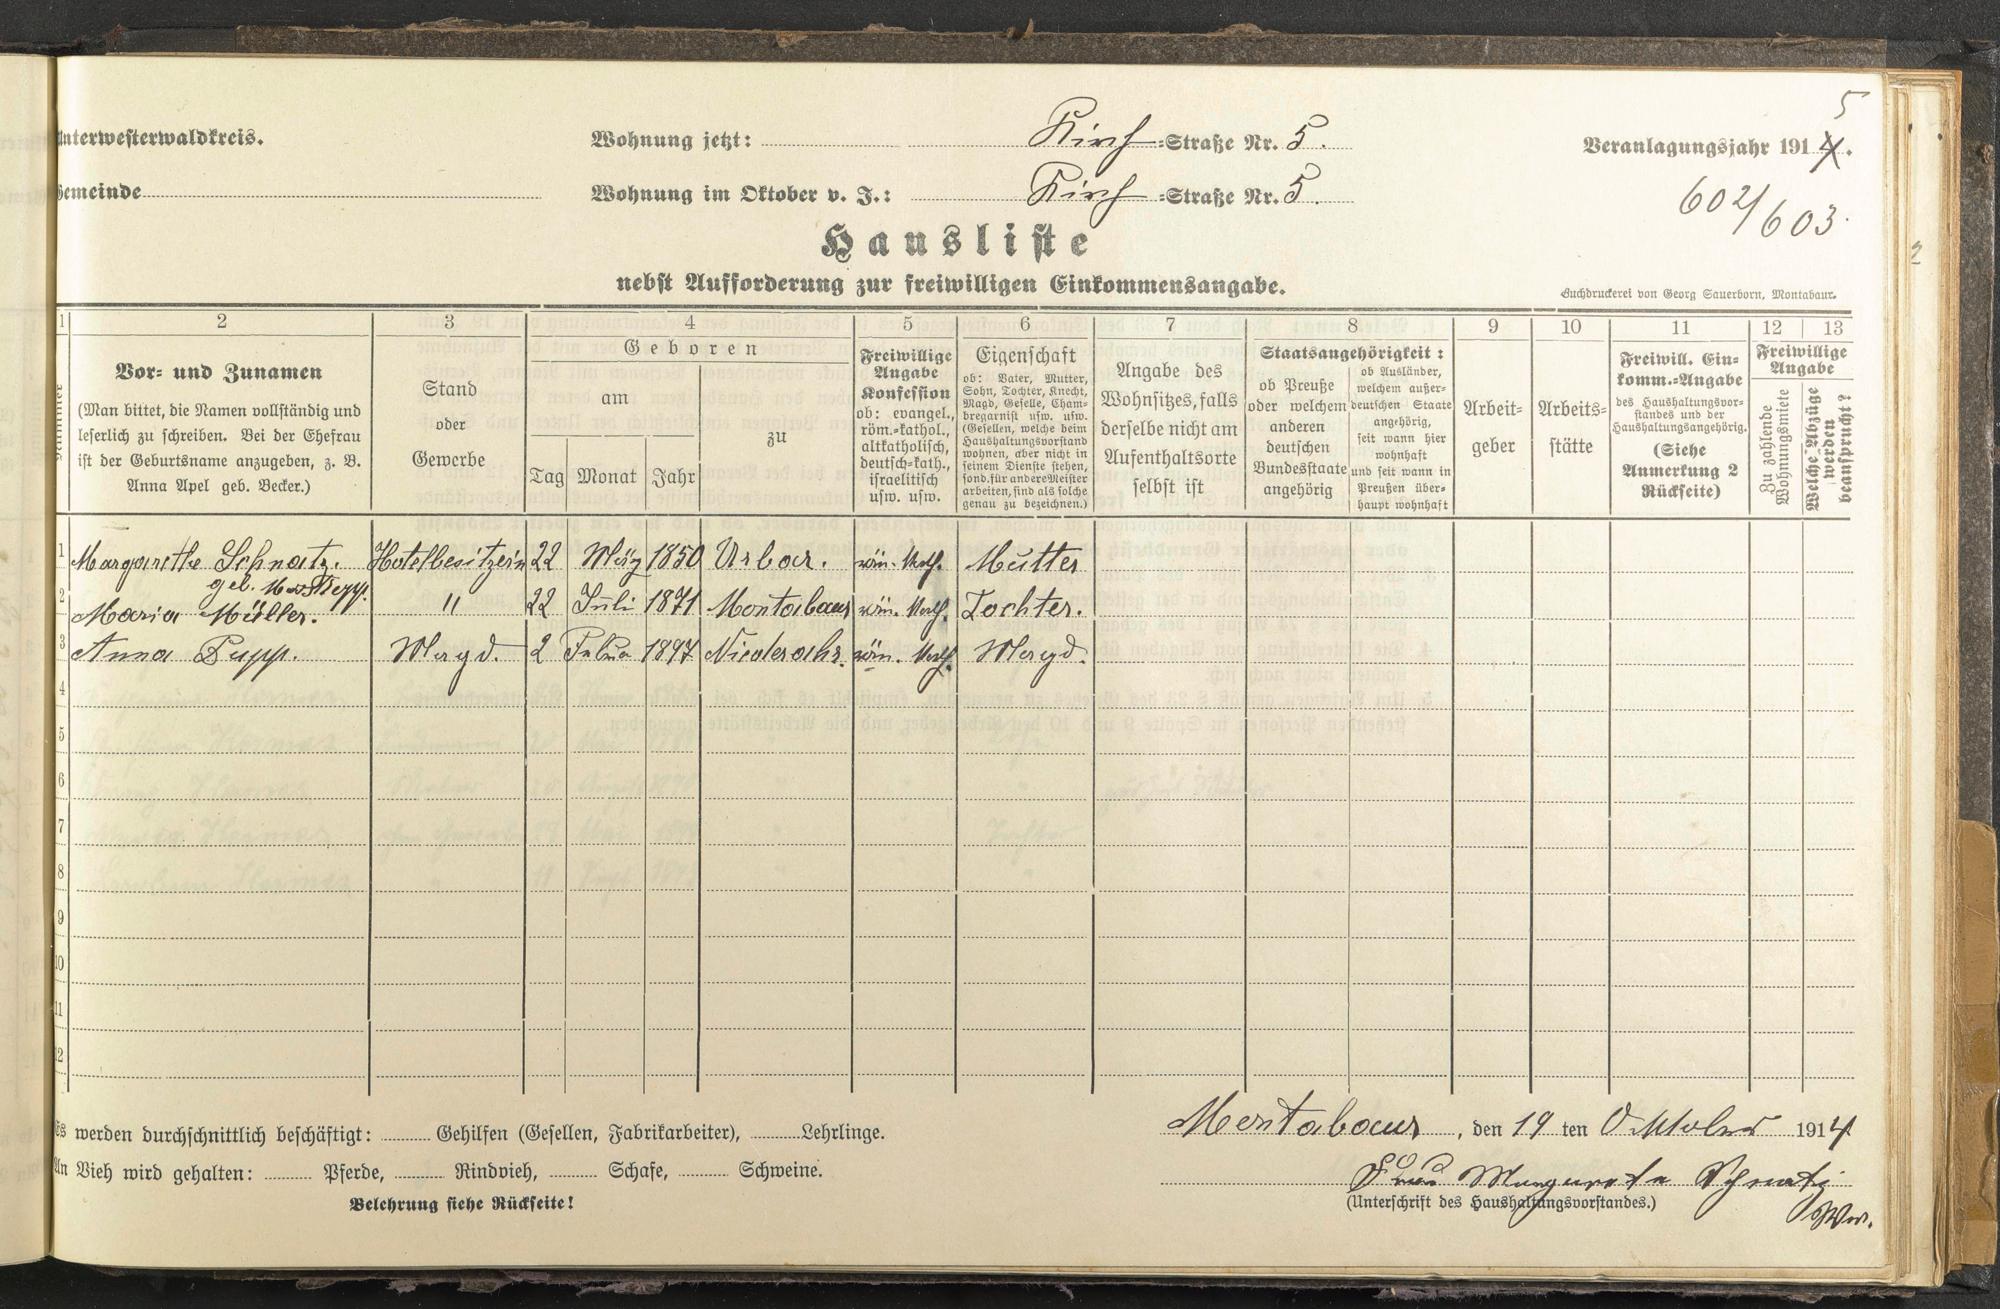 Unterwesterwaldkreis.
Wohnung jetzt: Kirch-Straße Nr. 5.
Veranlagungsjahr 1914.
5
Gemeinde
Wohnung im Oktober v. J.: Kirch-Straße Nr. 5.
602/603.
Hausliste
nebst Aufforderung zur freiwilligen Einkommensangabe.
Buchdruckerei von Georg Sauerborn, Montabaur.
1 2 3 4 5 6 7 8 9 10 11 12 13
Nummer
Vor- und Zunamen
(Man bittet, die Namen vollständig und
leserlich zu schreiben. Bei der Ehefrau
ist der Geburtsname anzugeben, z. B.
Anna Apel geb. Becker.)
Stand
oder
Gewerbe
Geboren
am
Tag Monat Jahr
zu
Freiwillige
Angabe
Konfession
ob: evangel.,
röm.-kathol.,
altkatholisch,
deutsch-kath.,
israelitisch
usw. usw.
Eigenschaft
ob: Vater, Mutter,
Sohn, Tochter, Knecht,
Magd, Geselle, Cham-
bregarnist usw. usw.
(Gesellen, welche beim
Haushaltungsvorstand
wohnen, aber nicht in
seinem Dienste stehen,
sond. für andere Meister
arbeiten, sind als solche
genau zu bezeichnen.)
Angabe des
Wohnsitzes, falls
derselbe nicht am
Aufenthaltsorte
selbst ist
Staatsangehörigkeit:
ob Preuße
oder welchem
anderen
deutschen
Bundesstaate
angehörig
ob Ausländer,
welchem außer-
deutschen Staate
angehörig,
seit wann hier
wohnhaft
und seit wann in
Preußen über-
haupt wohnhaft
Arbeit-
geber
Arbeits-
stätte
Freiwill. Ein-
komm.-Angabe
des Haushaltungsvor-
standes und der
Haushaltungsangehörig.
(Siehe
Anmerkung 2
Rückseite)
Freiwillige
Angabe
Zu zahlende
Wohnungsmiete
Welche Abzüge
werden
beansprucht?
1 Margarethe Schnatz. Hotelbesitzerin 22 März 1850 Urbar. röm. kath. Mutter
geb.
2 Maria Müller. " 22 Juli 1871 Montabaur röm. kath. Tochter.
3 Anna Pupp. Magd. 2 Febru 1897 Niederahr. röm. kath. Magd.
4
5
6
7
8
9
10
11
12
Es werden durchschnittlich beschäftigt: Gehilfen (Gesellen, Fabrikarbeiter), Lehrlinge.
An Vieh wird gehalten: Pferde, Rindvieh, Schafe, Schweine.
Belehrung siehe Rückseite!
Montabaur, den 19ten Oktober 1914
Frau Margareta Schnatz
(Unterschrift des Haushaltungsvorstandes.)
Ww.